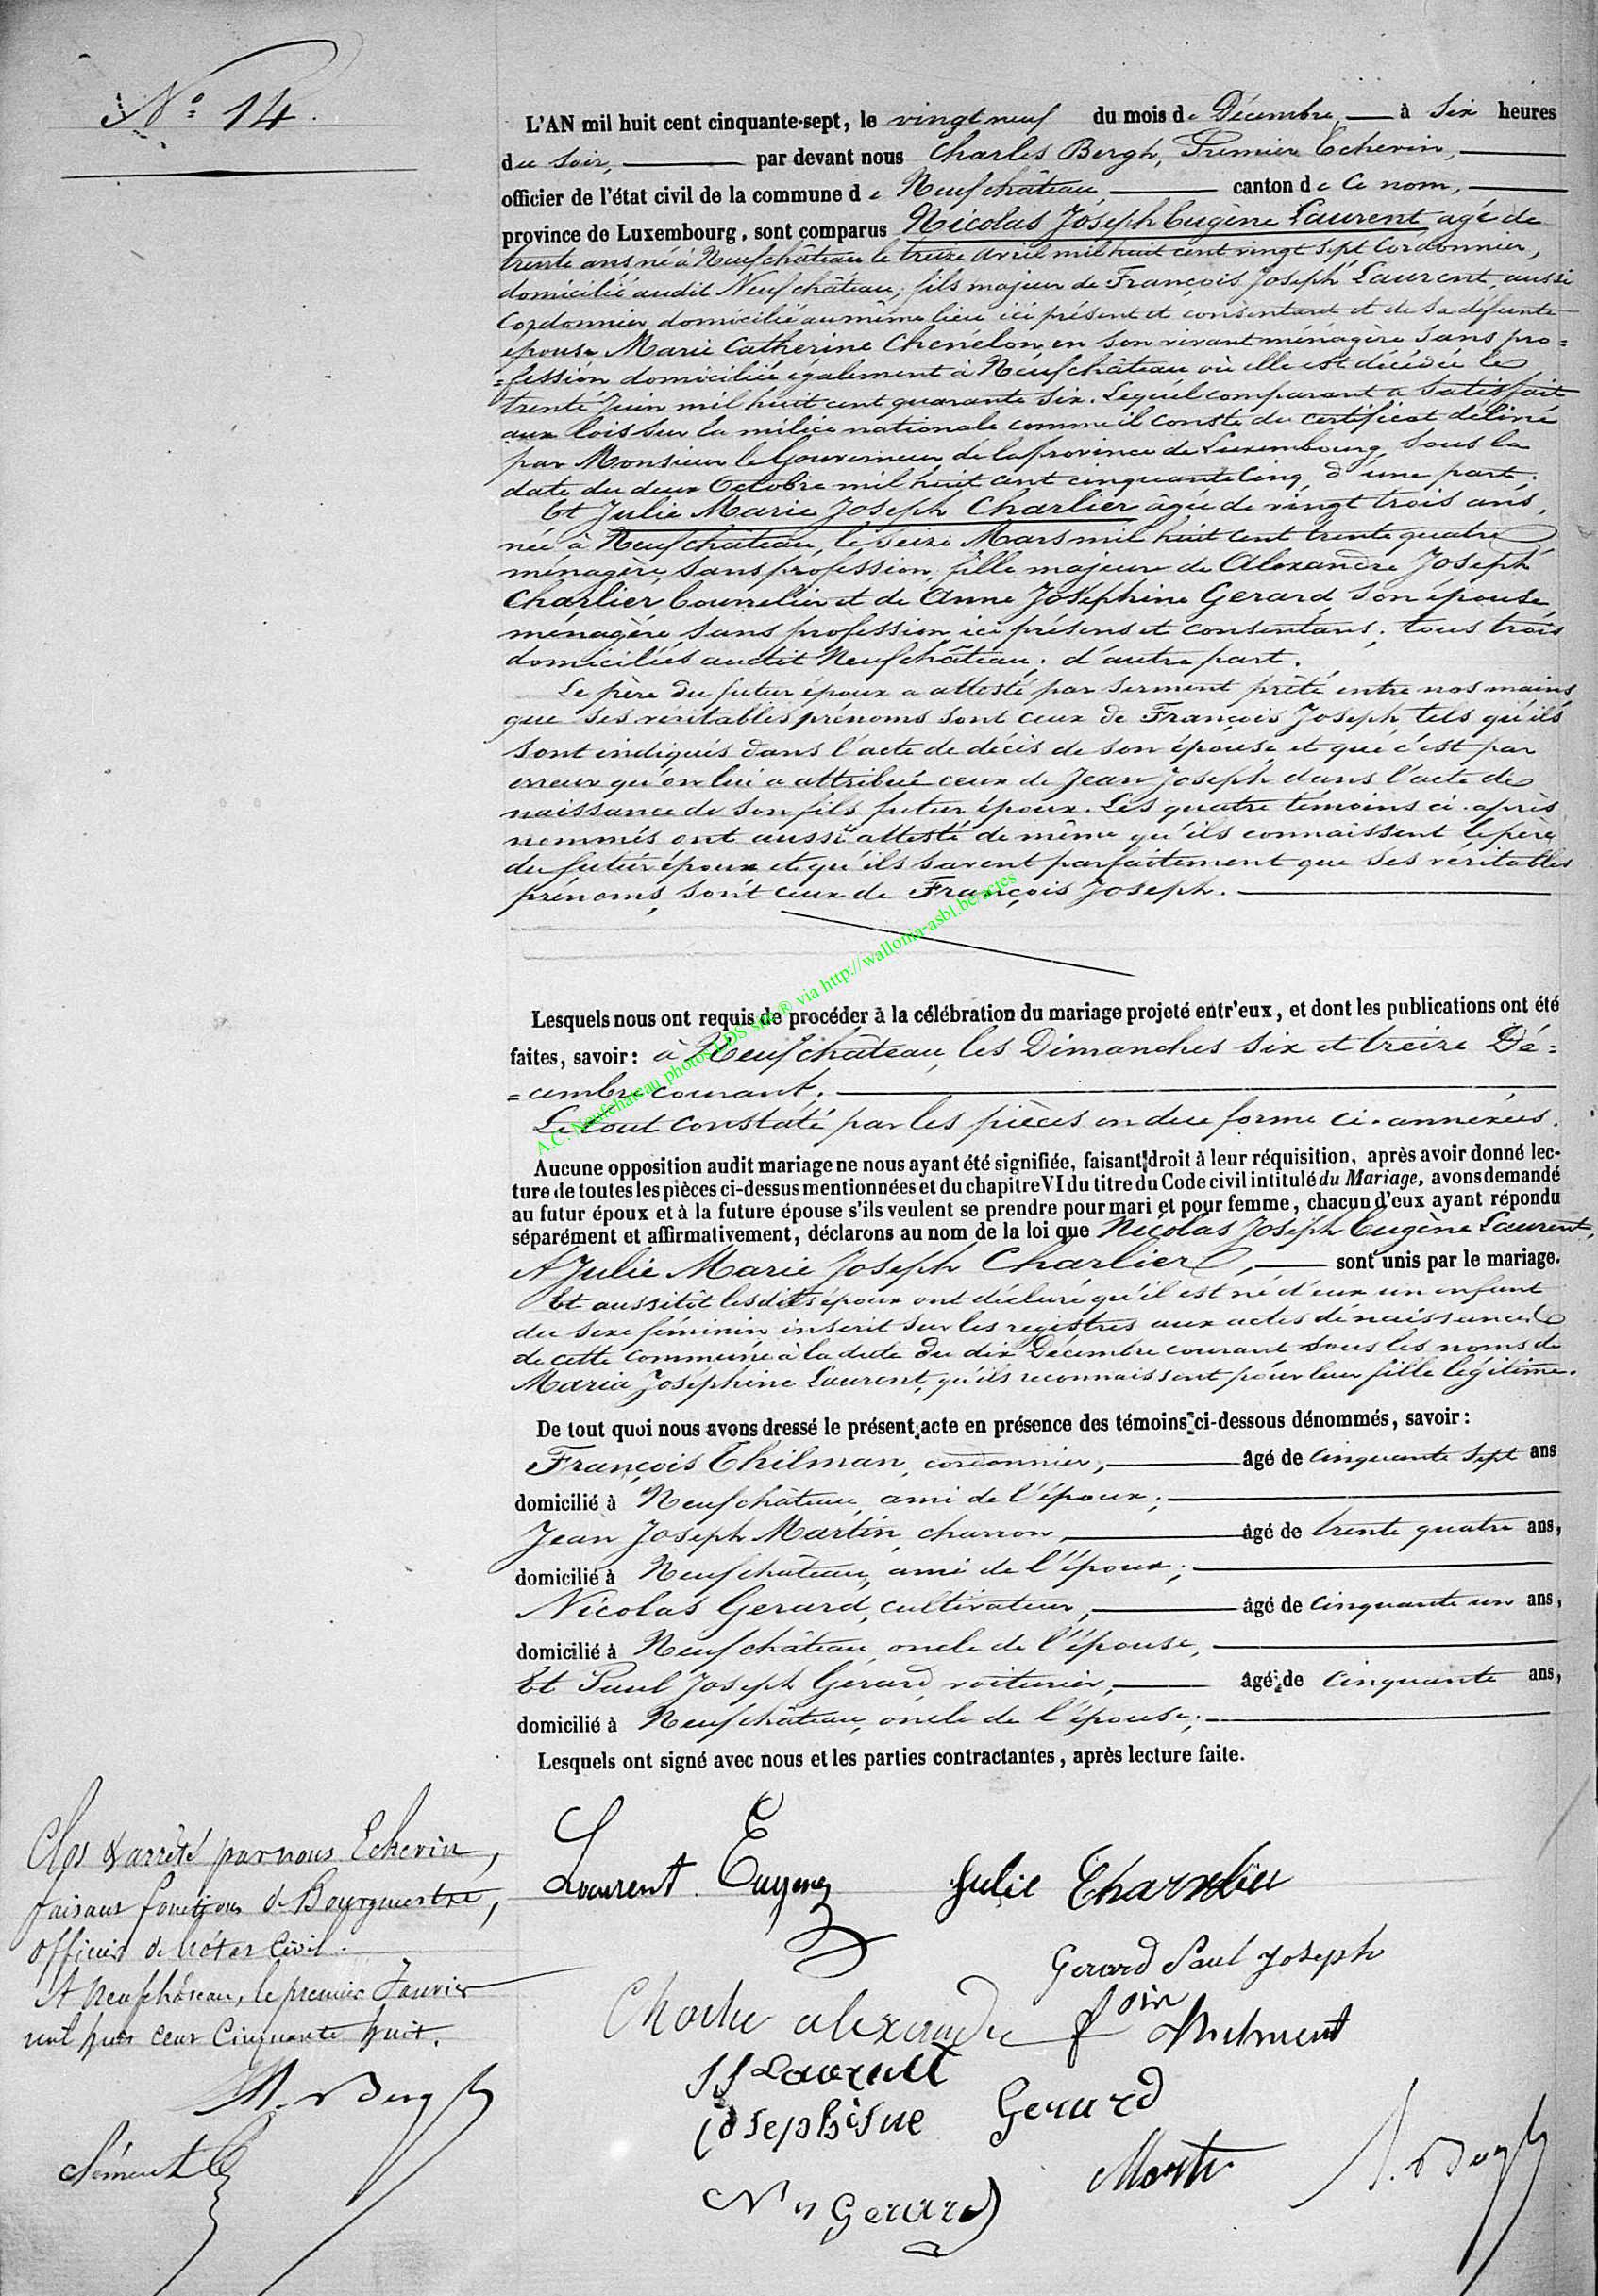 N° 14.
L'AN mil huit cent cinquante-sept, le vingt neuf du mois de Décembre, à Six heures
du Soir, par devant nous Charles Bergh, Premier Echevin,
officier de l'état civil de la commune de Neufchâteau, canton de Ce nom,
province de Luxembourg, sont comparus Nicolas Joseph Eugène Laurent agé de
trente ans né à Neufchâteau le treize avril mil huit cent vingt sept Cordonnier,
domicilié audit Neufchâteau; fils majeur de François Joseph Laurent, aussi
Cordonnier domicilié au même lieu ici présent et consentant et de sa défunte
épouse Marie Catherine Chenélon en son vivant ménagère Sans pro=
=fession domiciliée également à Neufchâteau où elle est décédée le
trente Juin mil huit cent quarante Six. Lequel comparant a Satisfait
aux lois sur la milice nationale comme il conste du certificat délivré
par Monsieur le Gouverneur de la province de Luxembourg, Sous la
date du deux Octobre mil huit cent cinquante Cinq, d'une part.
Et Julie Marie Joseph Charlier âgée de vingt trois ans,
née à Neufchâteau, le Seize Mars mil huit cent trente quatre
ménagère, Sans profession, fille majeure de Alexandre Joseph
Charlier Bourrelier et de Anne Joséphine Gerard Son épouse
ménagère Sans profession ici présens et consentans; tous trois
domiciliés audit Neufchâteau; d'autre part.
Le père du futur époux a attesté par Serment prêté entre nos mains
que Ses véritables prénoms Sont ceux de François Joseph tels qu'ils
Sont indiqués dans l'acte de décès de Son épouse et que c'est par
erreur qu'on lui a attribué ceux de Jean Joseph dans l'acte de
naissance de Son fils futur époux. Les quatre témoins ci-après
nommés ont aussi attesté de même qu'ils connaissent le père
du futur époux et qu'ils Savent parfaitement que Ses véritables
prénoms, Sont ceux de François Joseph.
Lesquels nous ont requis de procéder à la célébration du mariage projeté entr'eux, et dont les publications ont été
faites, savoir: à Neufchâteau, les Dimanches Six et treize Dé=
=cembre courant.
Le tout constaté par les pièces en due forme ci-annexées.
Aucune opposition audit mariage ne nous ayant été signifiée, faisant droit à leur réquisition, après avoir donné lec-
ture de toutes les pièces ci-dessus mentionnées et du chapitre VI du titre du Code civil intitulé du Mariage, avons demandé
au futur époux et à la future épouse s'ils veulent se prendre pour mari et pour femme, chacun d'eux ayant répondu
séparément et affirmativement, déclarons au nom de la loi que Nicolas Joseph Eugène Laurent,
et Julie Marie Joseph Charlier, sont unis par le mariage.
Et aussitôt lesdits époux ont déclaré qu'il est né d'eux un enfant
du Sexe féminin inscrit Sur les registres aux actes de naissance
de cette Commune à la date du dix Décembre courant Sous les noms de
Maria Joséphine Laurent, qu'ils reconnaissent pour leur fille légitime.
De tout quoi nous avons dressé le présent acte en présence des témoins ci-dessous dénommés, savoir:
François Thilman, cordonnier, âgé de Cinquante Sept ans
domicilié à Neufchâteau, ami de l'époux;
Jean Joseph Martin, charron, âgé de trente quatre ans,
domicilié à Neufchâteau, ami de l'époux;
Nicolas Gerard, cultivateur, âgé de Cinquante un ans,
domicilié à Neufchâteau, oncle de l'épouse,
Et Paul Joseph Gerard, voiturier, âgé de Cinquante ans,
domicilié à Neufchâteau, oncle de l'épouse;
Lesquels ont signé avec nous et les parties contractantes, après lecture faite.
Laurent Eugene Julie Charlier
Gerard Paul Joseph
alexandre
JJ Laurent
josephine Gerard
Gerard
Clos & arrêté par nous Echevin,
faisant fonctions de Bourgmestre,
officier de l'état Civil.
A Neufchâteau, le premier Janvier
mil huit cent Cinquante huit.
Bergh
A.C. Neufchateau photos LDS sur ® via http://wallonia-asbl.be/actes